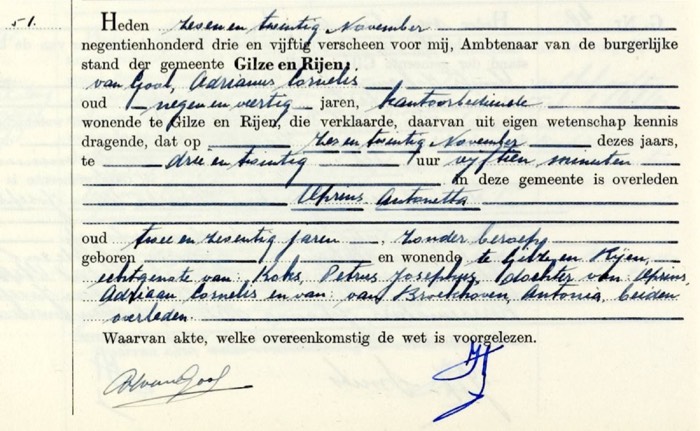 51.
Heden zes en twintig November
negentienhonderd drie en vijftig verscheen voor mij, Ambtenaar van de burgerlijke
stand der gemeente Gilze en Rijen,
van Gool, Adrianus Cornelis
oud negen en veertig jaren, kantoorbediende
wonende te Gilze en Rijen, die verklaarde, daarvan uit eigen wetenschap kennis
dragende, dat op zes en twintig November dezes jaars,
te drie en twintig uur vijftien minuten
in deze gemeente is overleden
Antonetta
oud twee en zesentig jaren, zonder beroep,
geboren en wonende te Gilze en Rijen,
echtgenote van Koks, Petrus Josephus, dochter van
Adriaan Cornelis en van van Broekhoven, Antonia, beiden
overleden.
Waarvan akte, welke overeenkomstig de wet is voorgelezen.
AvanGool